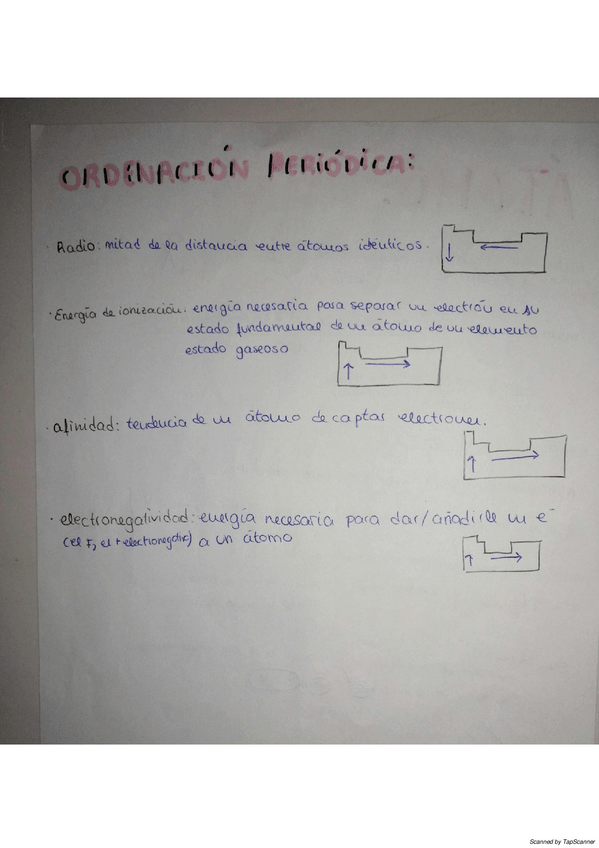 ORDENACIÓN PERIÓDICA:
· Radio: mitad de la distancia entre átomos idénticos.
· Energía de ionización: energía necesaria para separar un electrón en su
estado fundamental de un átomo de un elemento
estado gaseoso
· afinidad: tendencia de un átomo de captar electrones.
· electronegatividad: energía necesaria para dar/añadirle un e⁻
(el F, el + electronegativo) a un átomo
Scanned by TapScanner